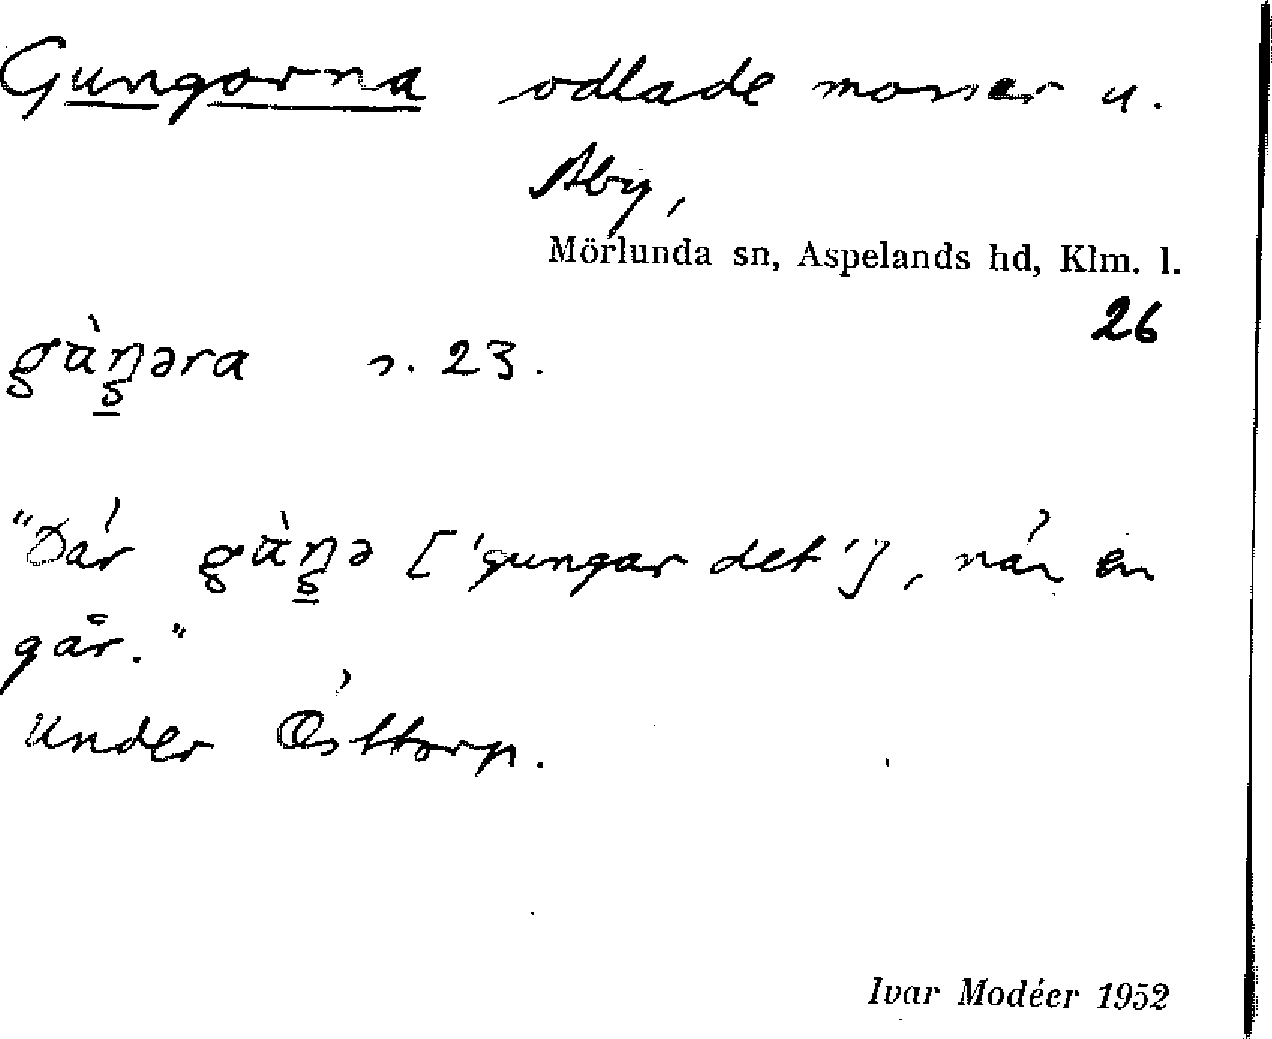 Gungorna odlade mosser u.
Åby,
Mörlunda sn, Aspelands hd, Klm. l.
26
gùŋəra s. 23.
"Där gùŋə ['gungar det'], när en
går."
under Östtorp.
Ivar Modéer 1952